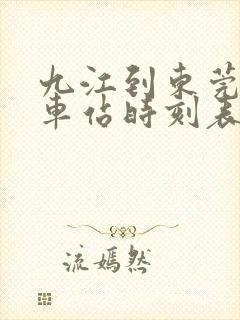 九江到東莞
車佔時刻表
流嫣然